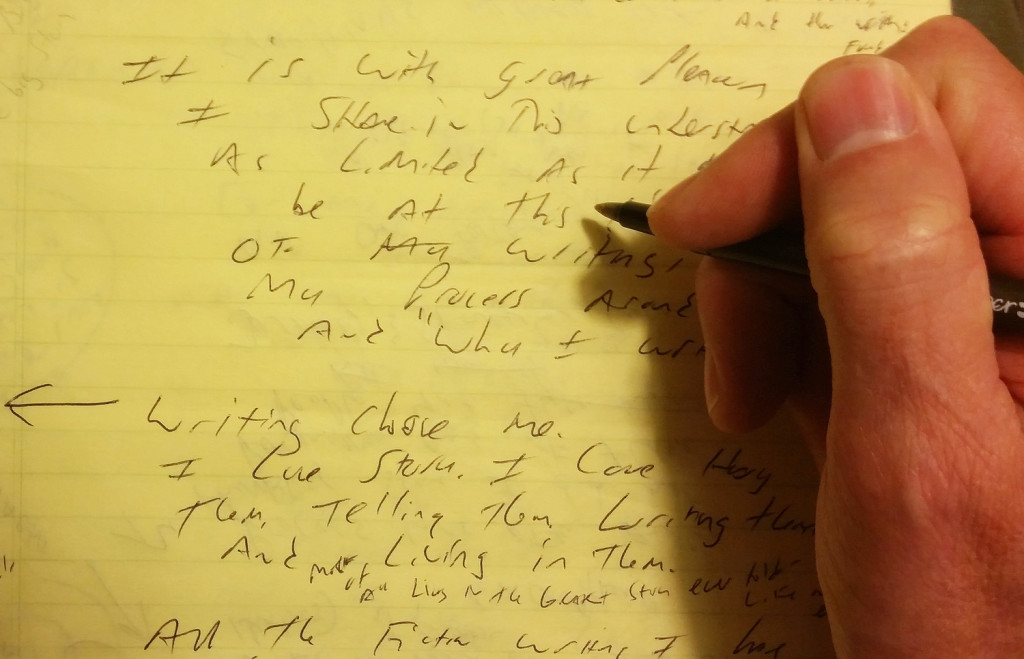 And the
It is with Great Pleasure
I Share in This
As Limited As it
be At this
OF My Writing,
My Process Around
And "Why I
Writing Chose me.
I Love Story. I Love
Them, Telling Them, Writing them
And Living in Them.
most of All Living in the Greatest Story ever told
All the Fiction writing I have